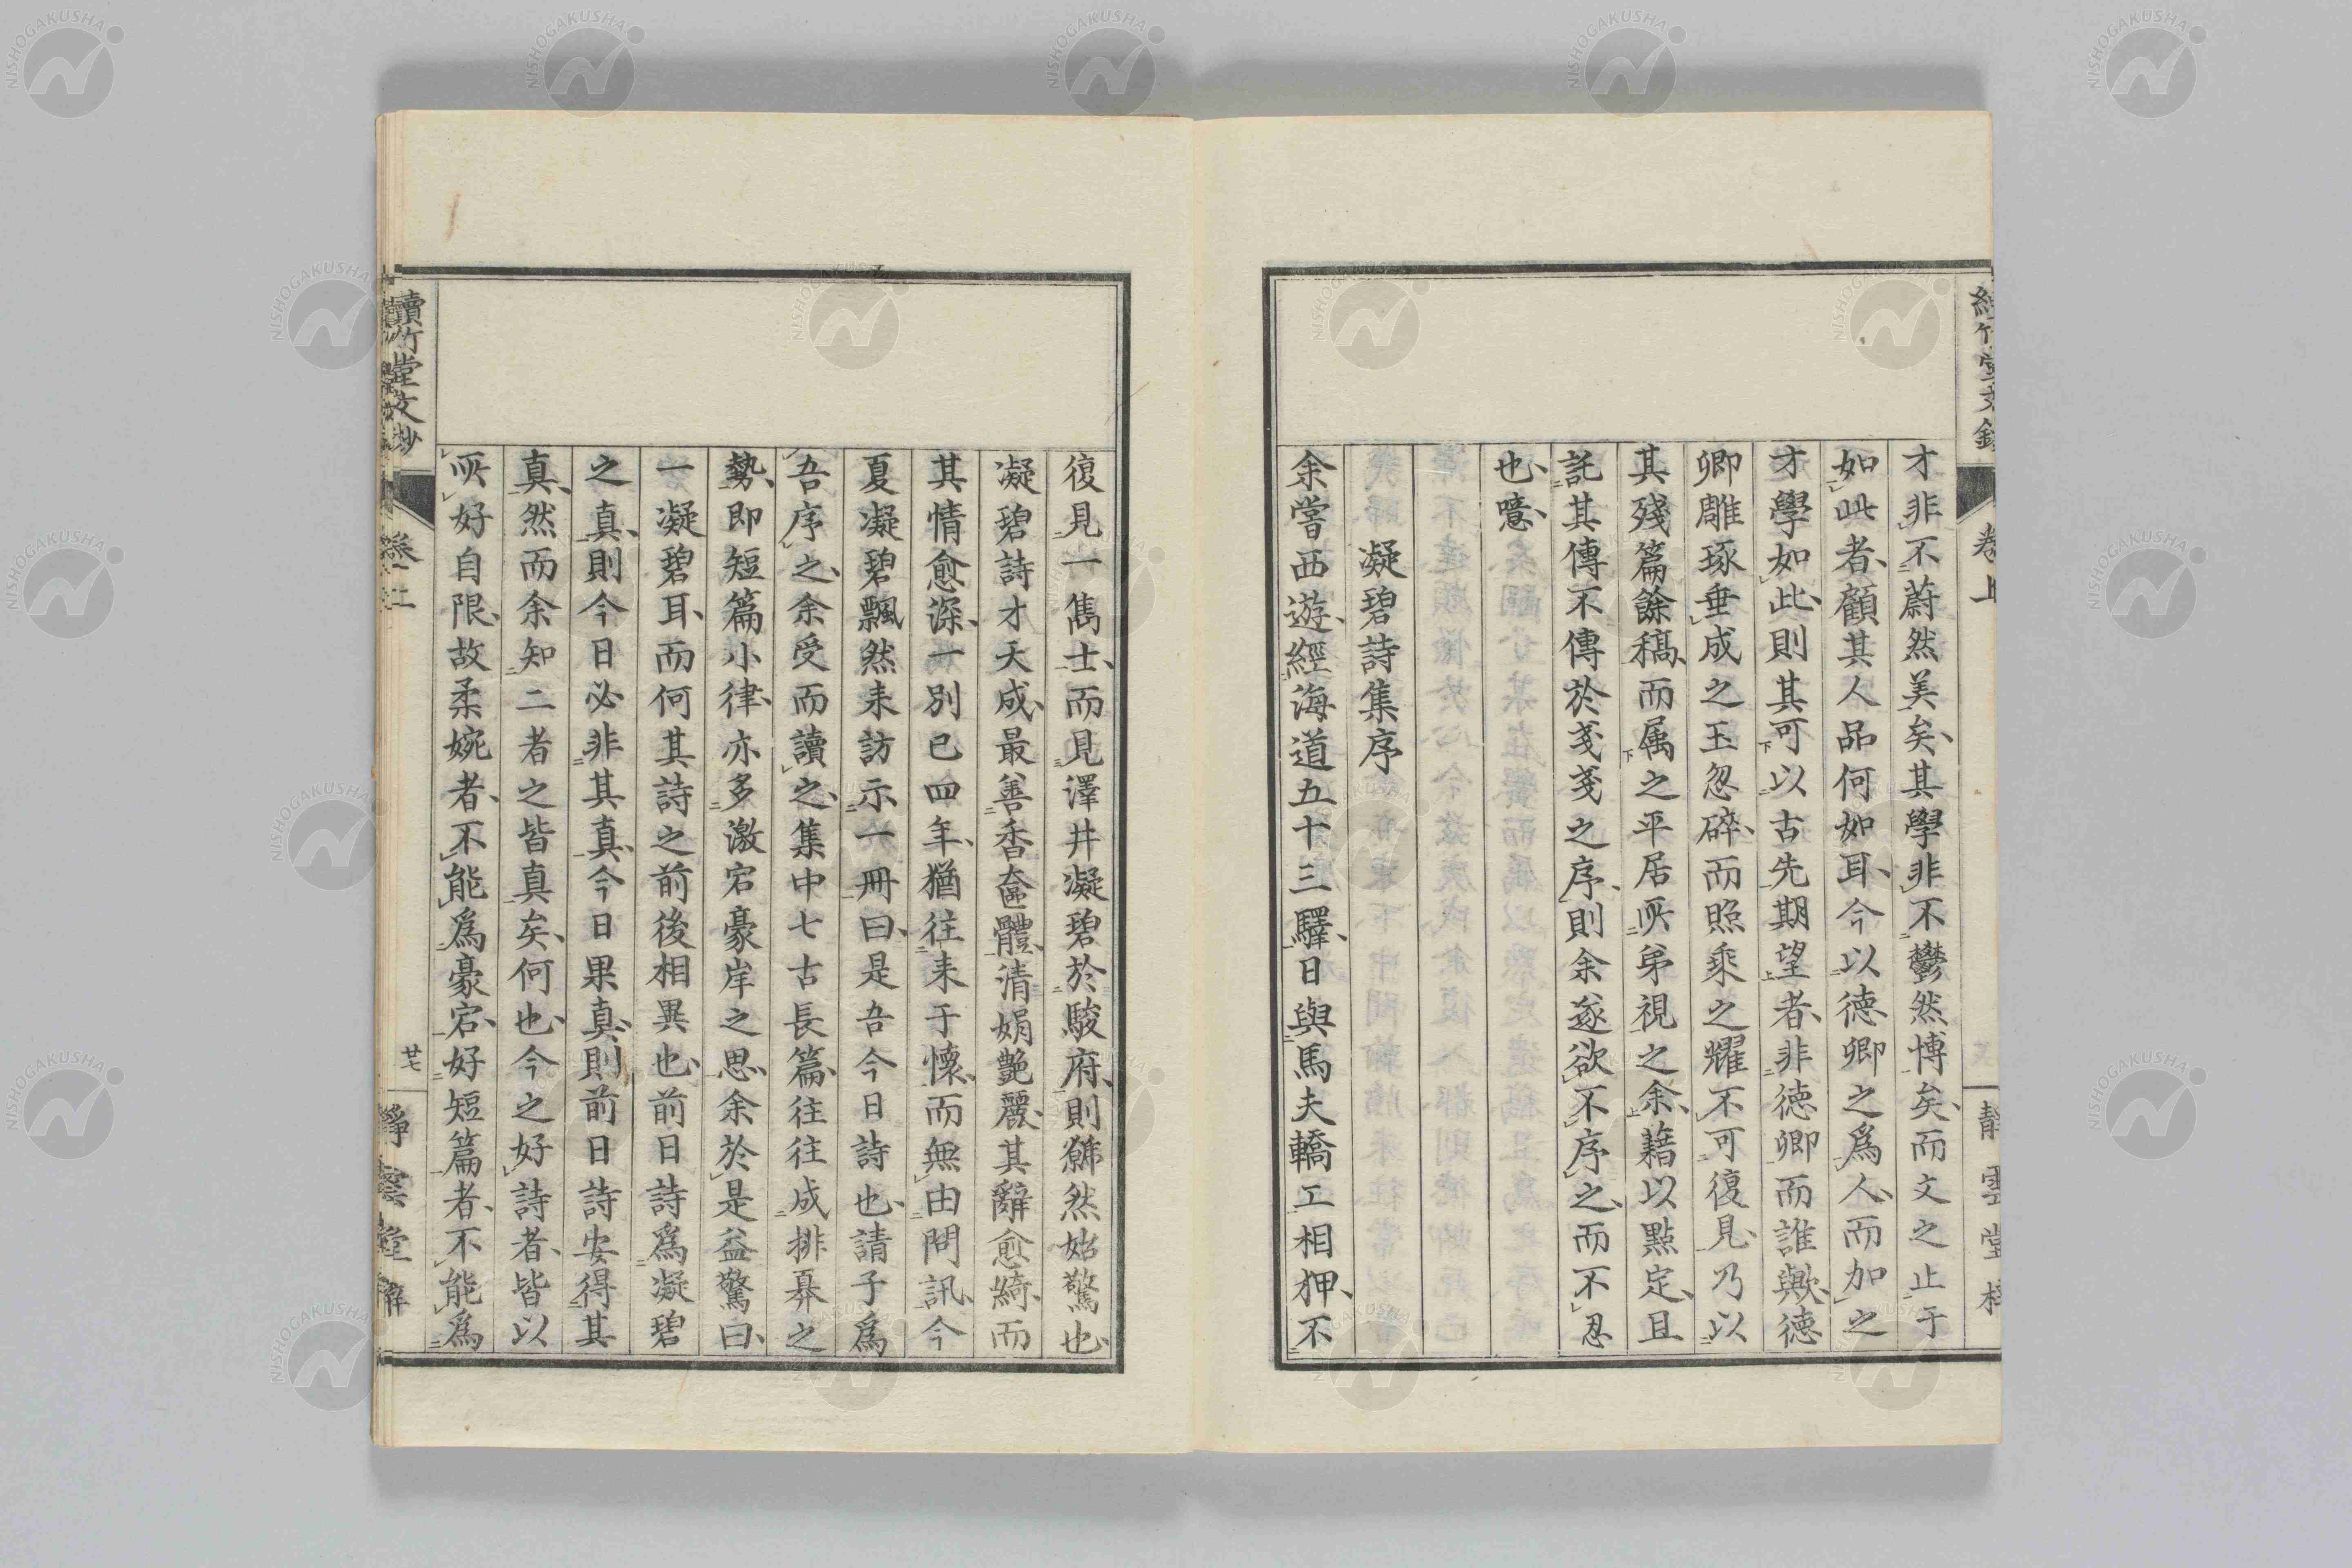 才非不蔚然美矣、其學非不鬱然博矣、而文之止于
如此者、顧其人品何如耳、今以德卿之爲人、而加之
才學如此、則其可以古先期望者、非徳卿而誰歟、徳
卿雕琢垂成之玉忽碎、而照乘之耀不可復見、乃以
其殘篇餘稿、而属之平居所弟視之余、藉以點定、且
託其傳不傳於戔戔之序、則余遂欲不序之、而不忍
也、噫、
凝碧詩集序
余嘗西遊、經海道五十三驛、日與馬夫轎工相狎、不
卷上
復見一雋士、而見澤井凝碧於駿府、則躍然始驚也、
凝碧詩才天成、最善香奩體、清娟艶麗、其辭愈綺、而
其情愈深、一別已四年、猶往来于懷、而無由問訊、今
夏凝碧飄然来訪示一冊曰、是吾今日詩也、請子爲
吾序之、余受而讀之、集中七古長篇、往往成排奡之
勢、即短篇小律、亦多激宕豪岸之思、余於是益驚曰、
一凝碧耳、而何其詩之前後相異也、前日詩爲凝碧
之真、則今日必非其真、今日果真、則前日詩安得其
真、然而余知二者之皆真矣、何也、今之好詩者、皆以
所好自限、故柔婉者、不能爲豪宕、好短篇者、不能爲
讀竹堂文抄
廿七